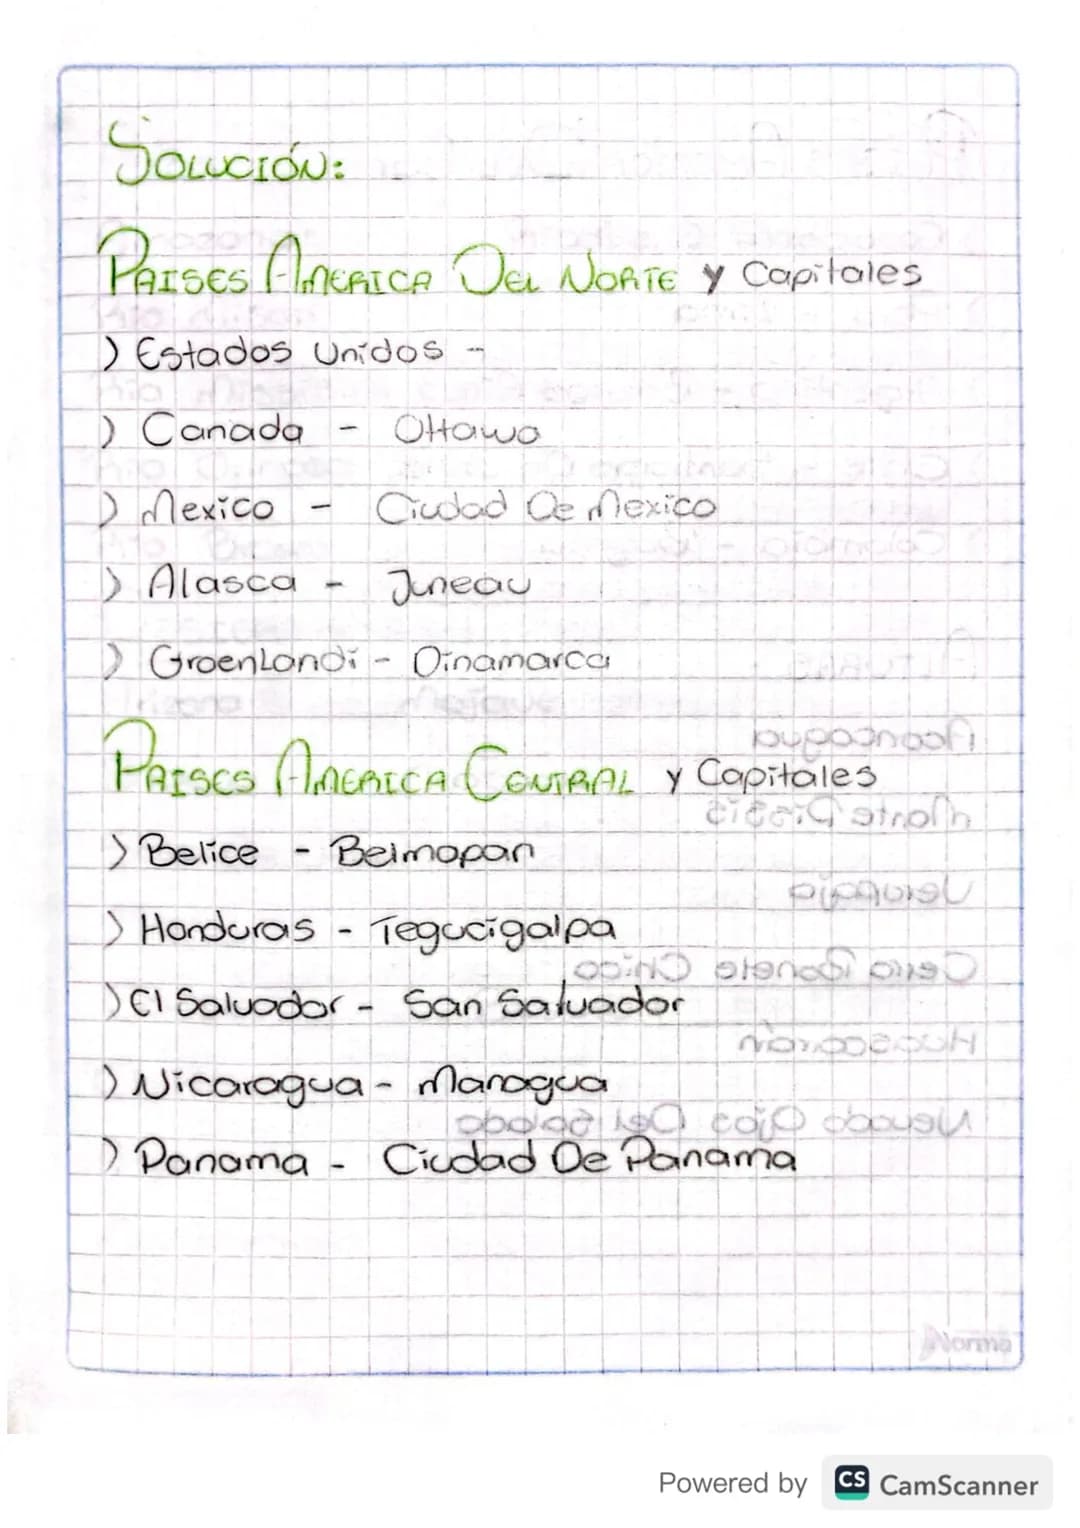 SOLUCIÓN:
PAISES AMERICA DEL NORTE y Capitales
) Estados Unidos -
) Canada - Ottawa
) Mexico - Ciudad De Mexico
) Alasca - Juneau
) GroenLandi - Dinamarca
PAISES AMERICA CENTRAL y Capitales
) Belice - Belmopan
) Honduras - Tegucigalpa
) El Salvador - San Salvador
) Nicaragua - Managua
) Panama - Ciudad De Panama
Norma
Powered by CS CamScanner